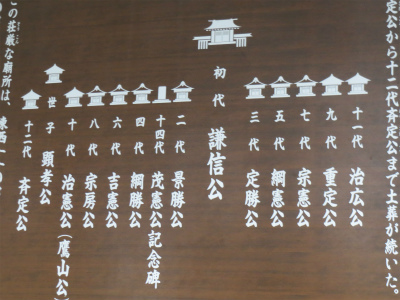 定公から十二代斉定公まで土葬が続いた。
十一代 治広公
九代 重定公
七代 宗憲公
五代 綱憲公
三代 定勝公
初代 謙信公
二代 景勝公
十四代 茂憲公記念碑
四代 綱勝公
六代 吉憲公
八代 宗房公
十代 治憲公(鷹山公)
世子 顕孝公
十二代 斉定公
この荘厳な廟所は、東西一